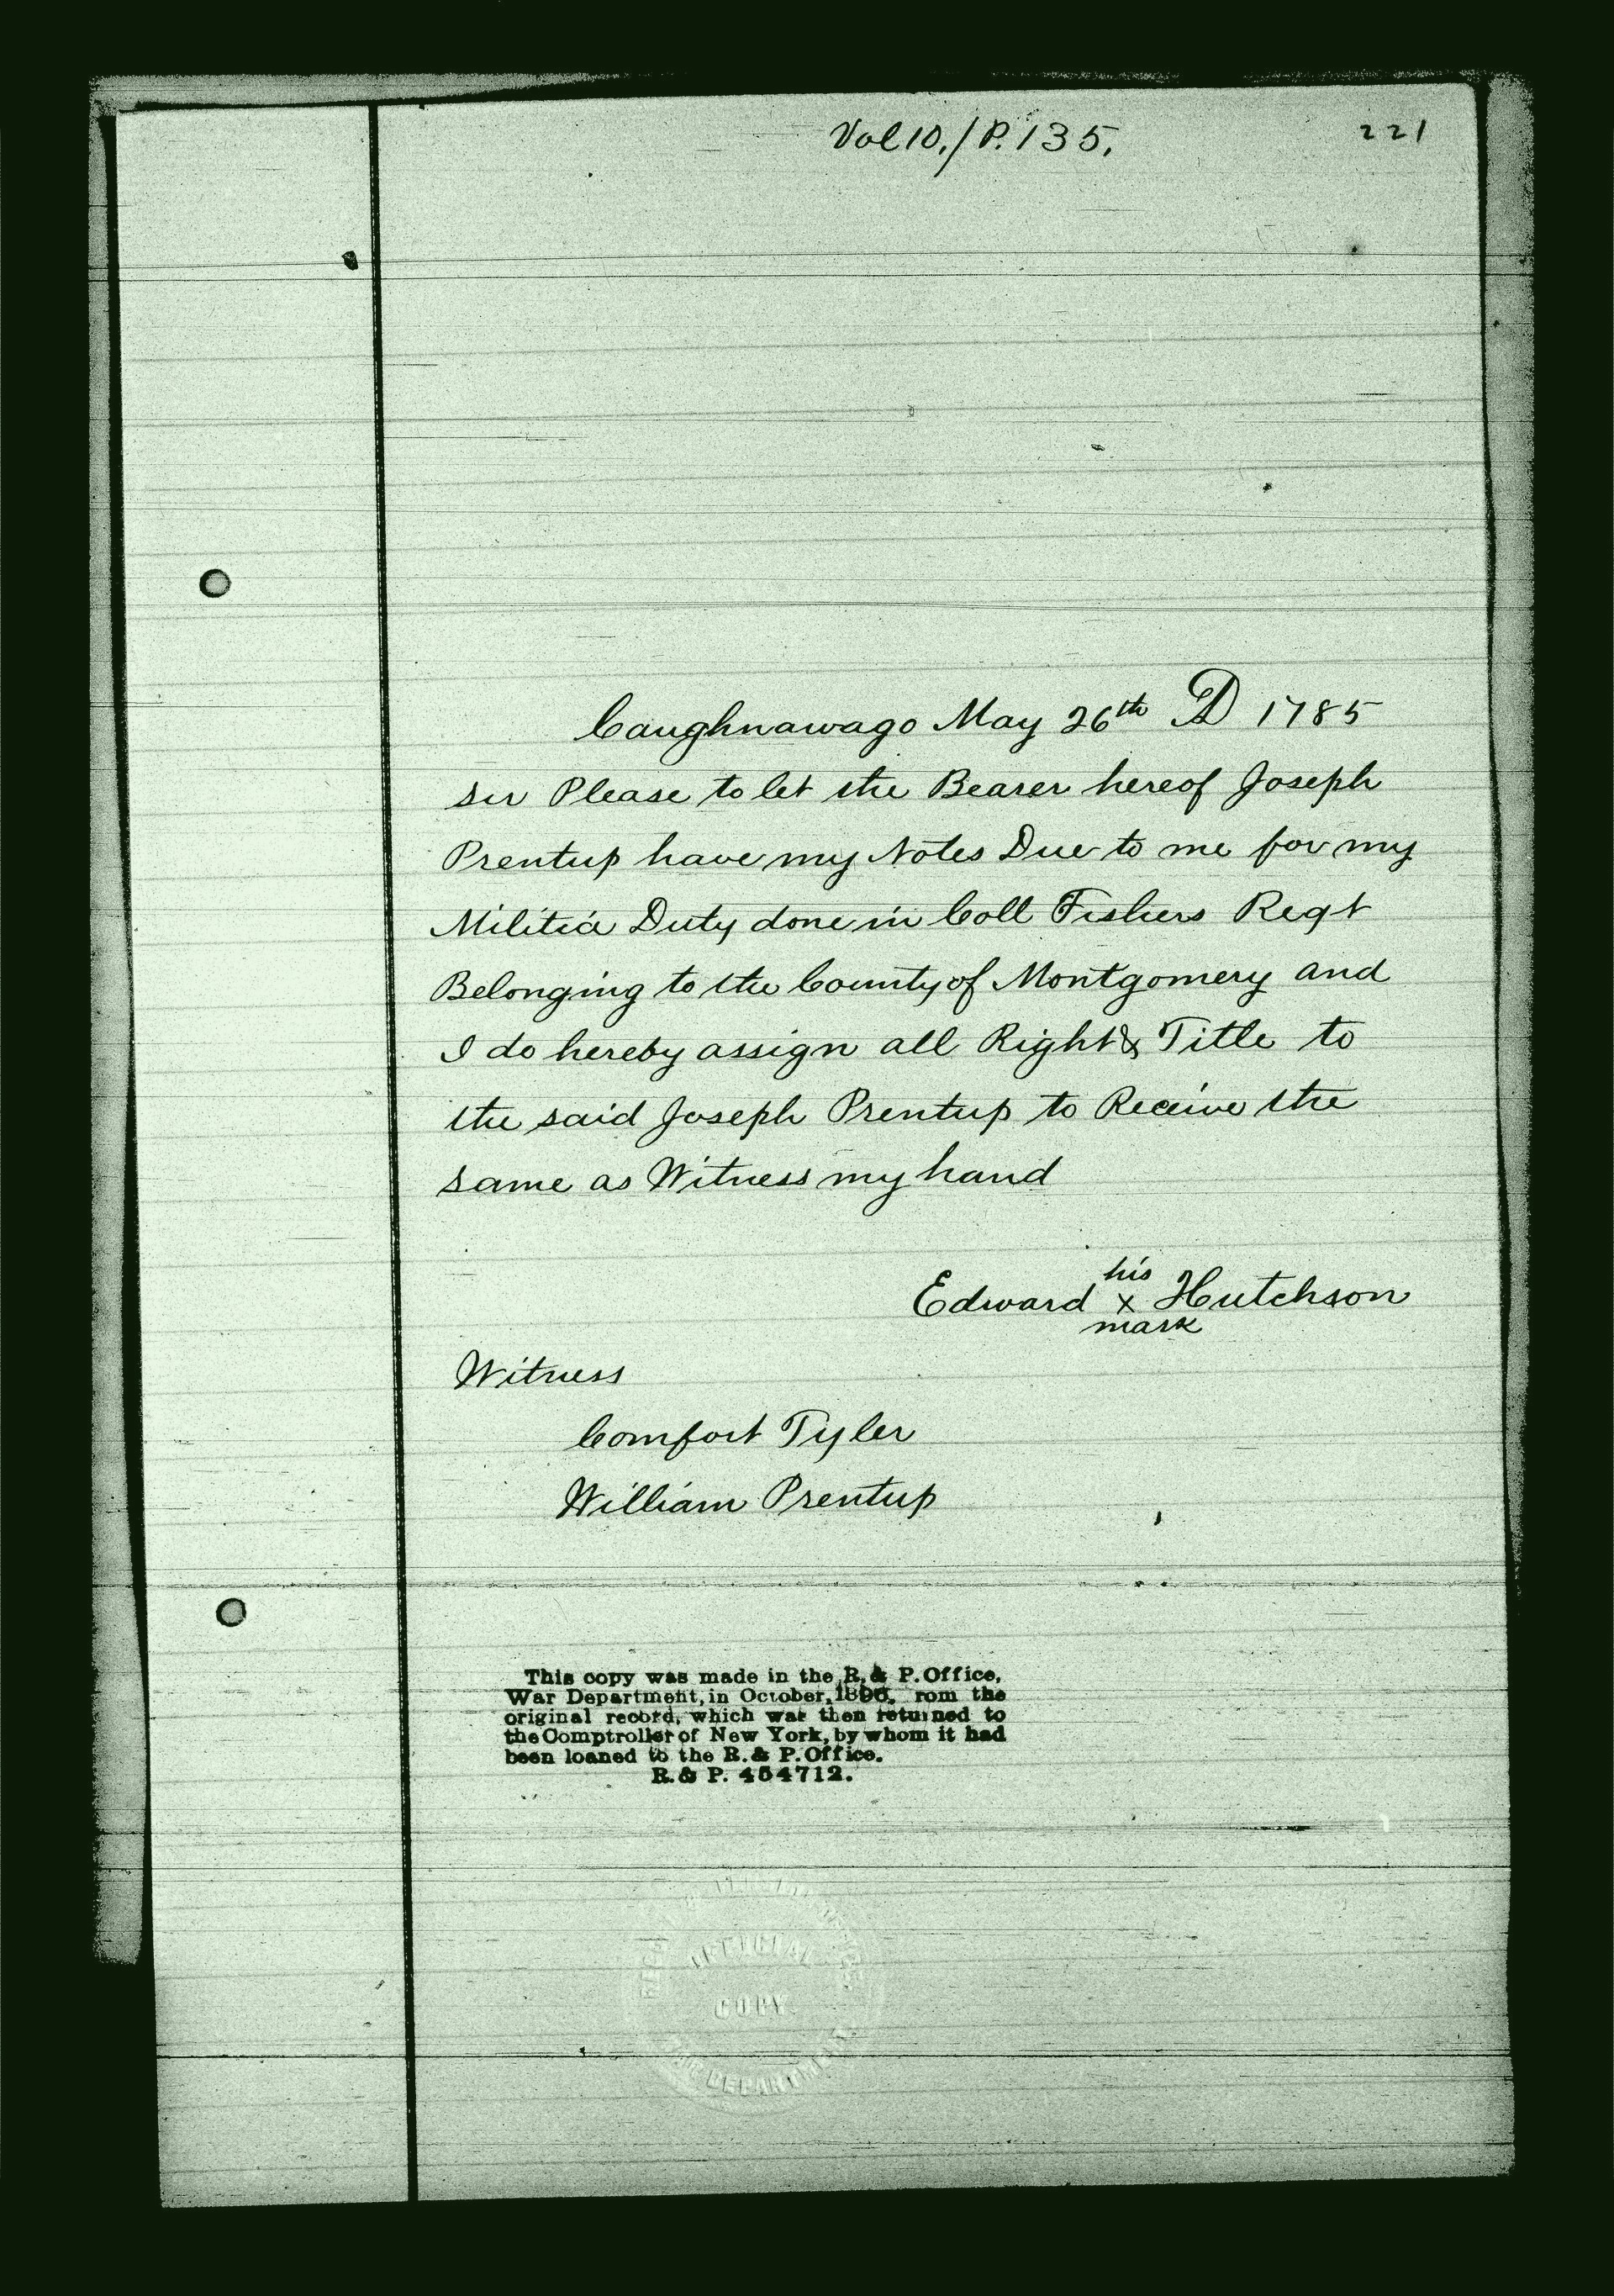 Vol 10./P. 135.
221
Caughnawago May 26th AD 1785
sir Please to let the Bearer hereof Joseph
Prentup have my Notes Due to me for my
Militia Duty done in Coll Fishers Regt
Belonging to the County of Montgomery and
I do hereby assign all Right & Title to
the said Joseph Prentup to Receive the
same as Witness my hand
his
Edward x Hutchson
mark
Witness
Comfort Tyler
William Prentup
This copy was made in the R. & P. Office,
War Department, in October, rom the
original record, which was then returned to
the Comptroller of New York, by whom it had
been loaned to the R. & P. Office.
R. & P. 454712.
OFFICIAL
COPY
WAR DEPARTMENT